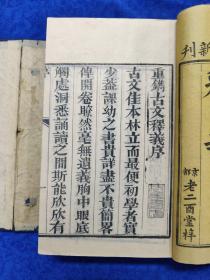 重鐫古文釋義序
古文佳本林立而最便初學者實
少蓋課幼之書貴詳盡不貴簡畧
俾開卷瞭然毫無遺義胸中眼底
闢處洞悉誦讀之間斯能欣欣有
新刊
京都
老二酉堂梓